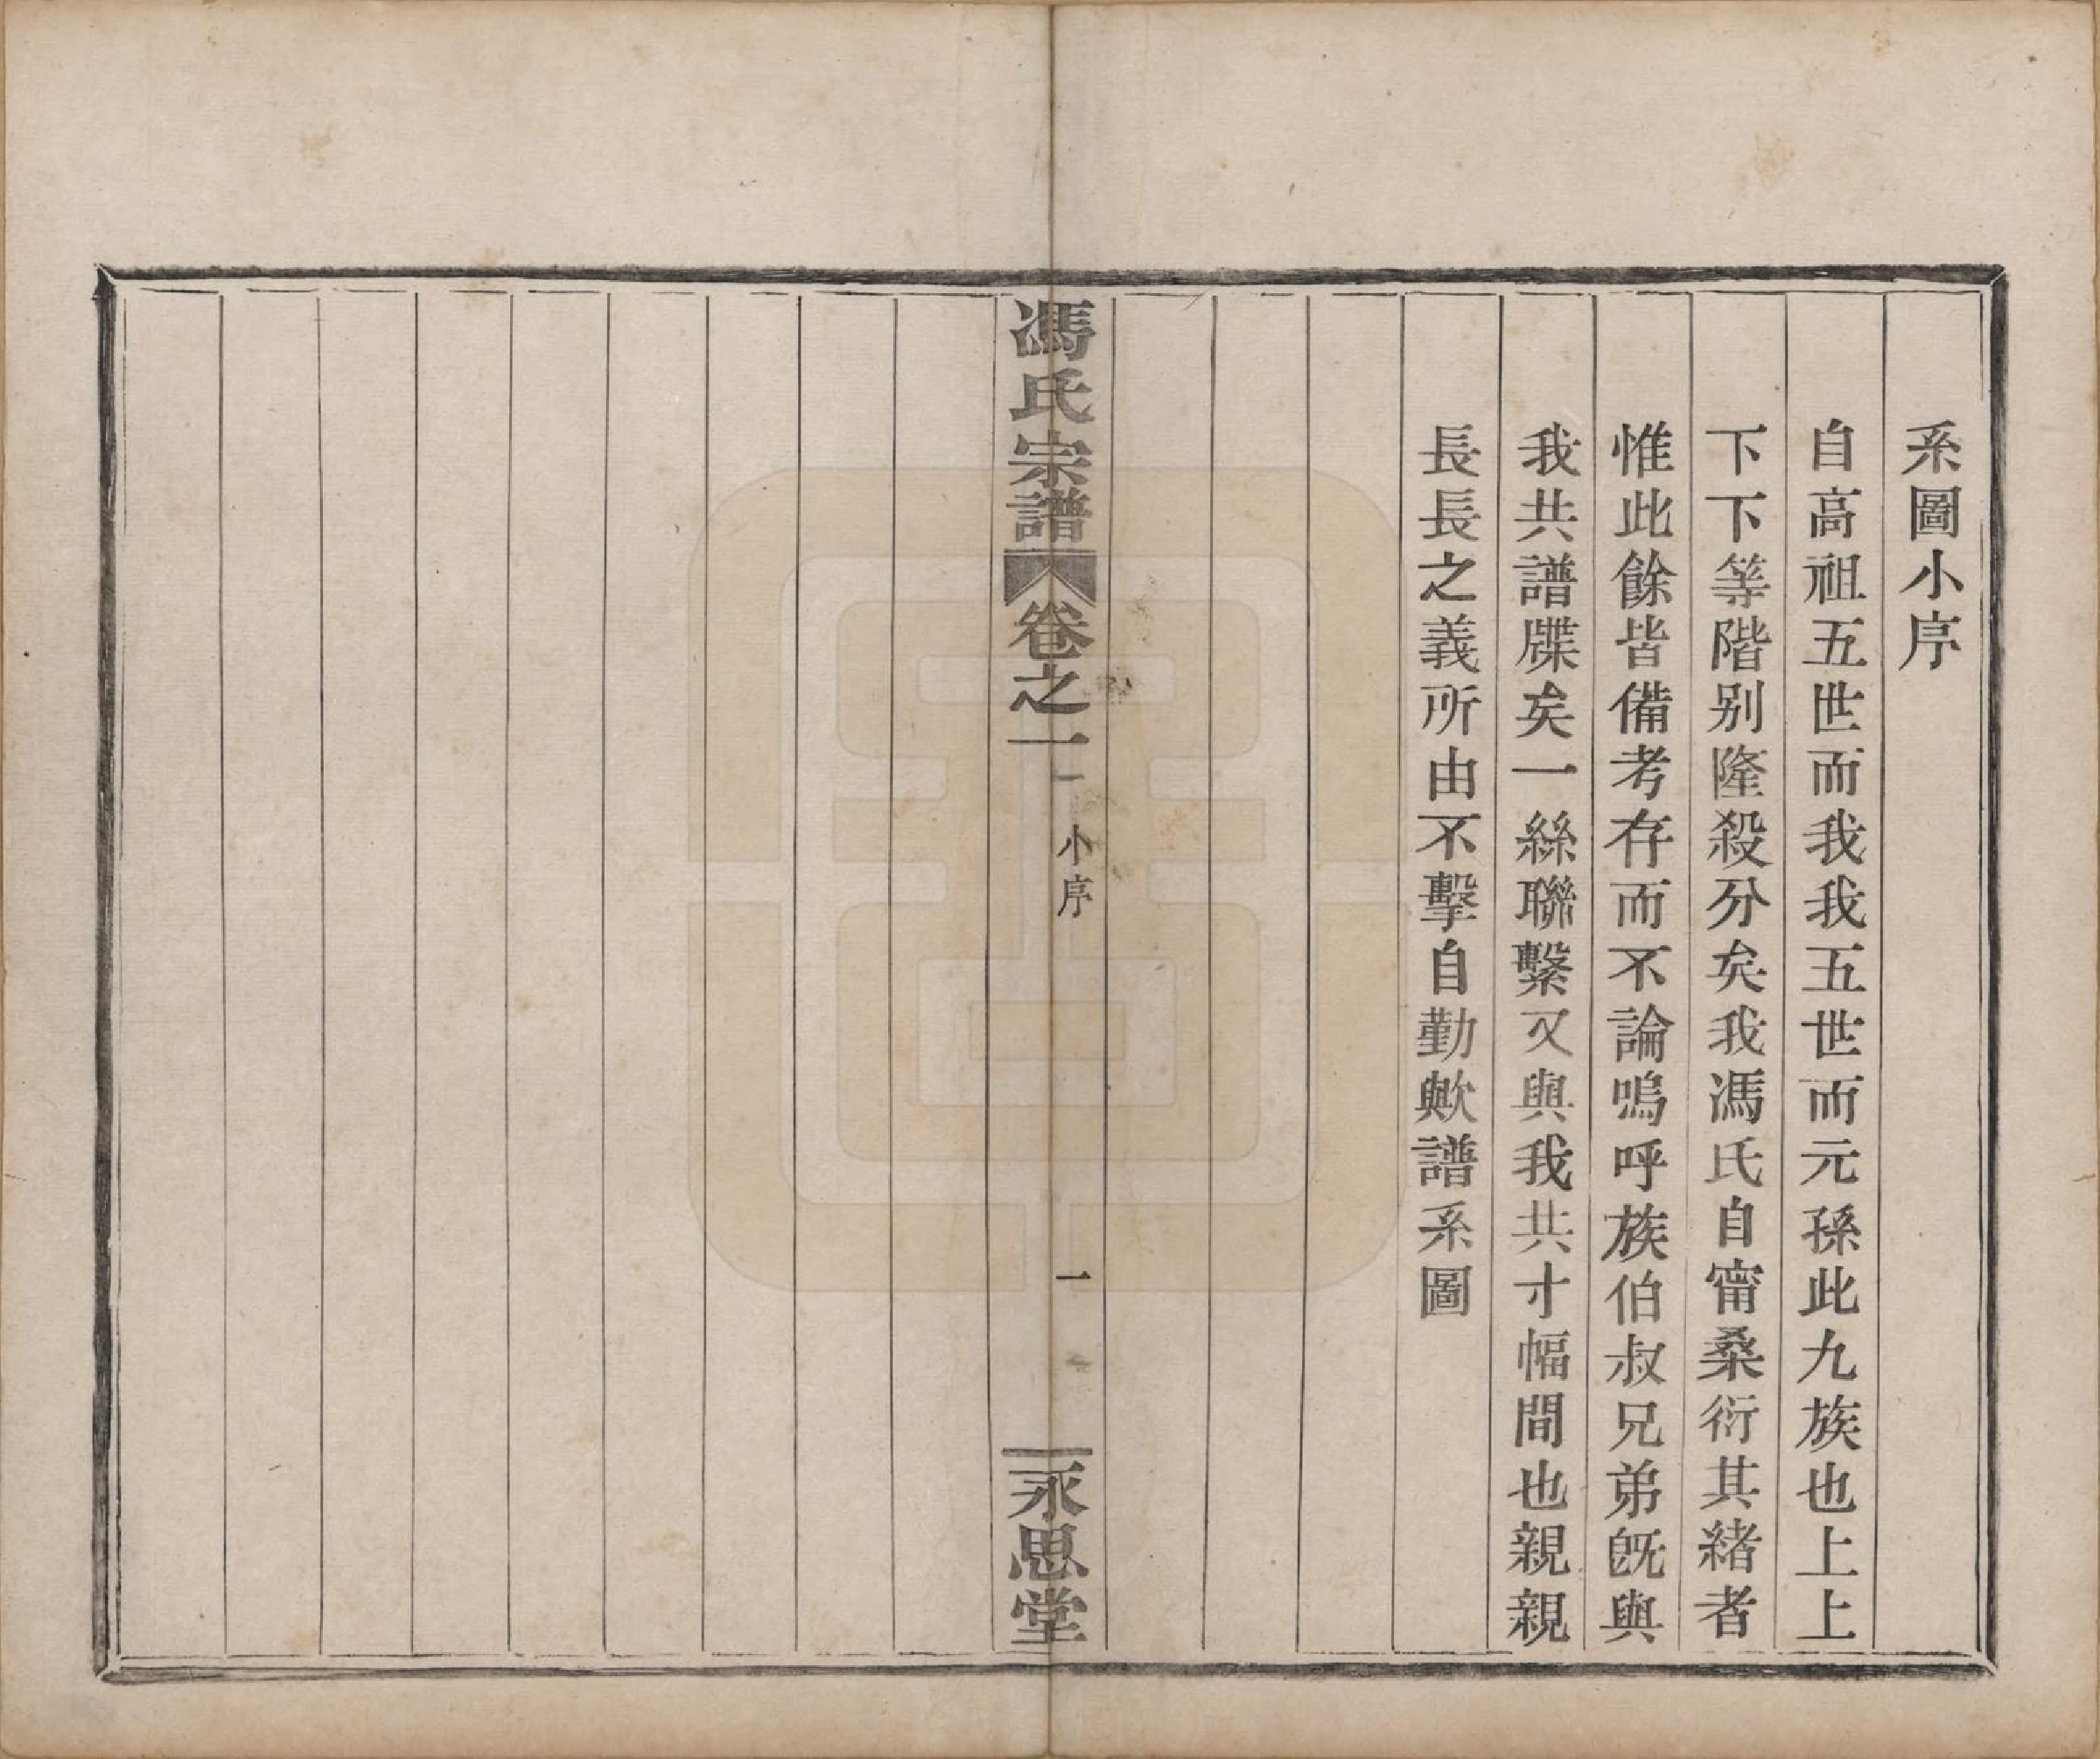 系圖小序
自高祖五世而我我五世而元孫此九族也上上
下下等階别隆殺分矣我馮氏自甯桑衍其緒者
惟此餘皆備考存而不論嗚呼族伯叔兄弟旣與
我共譜牒矣一絲聯繫又與我共寸幅間也親親
長長之義所由不擊自勤歟譜系圖
馮氏宗譜 卷之一 小序 一 永思堂